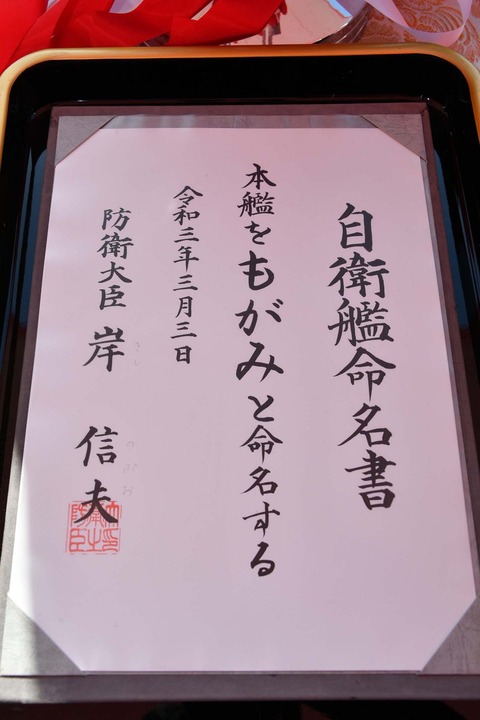 自衛艦命名書
本艦をもがみと命名する
令和三年三月三日
防衛大臣 岸 信夫
きし のぶお